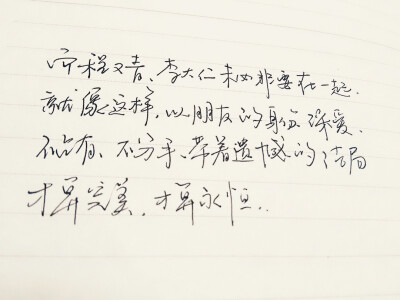 而程又青、李大仁未必非要在一起.
就像这样，以朋友的身份深爱.
不占有、不分手、带着遗憾的结局
才算完美，才算永恒..